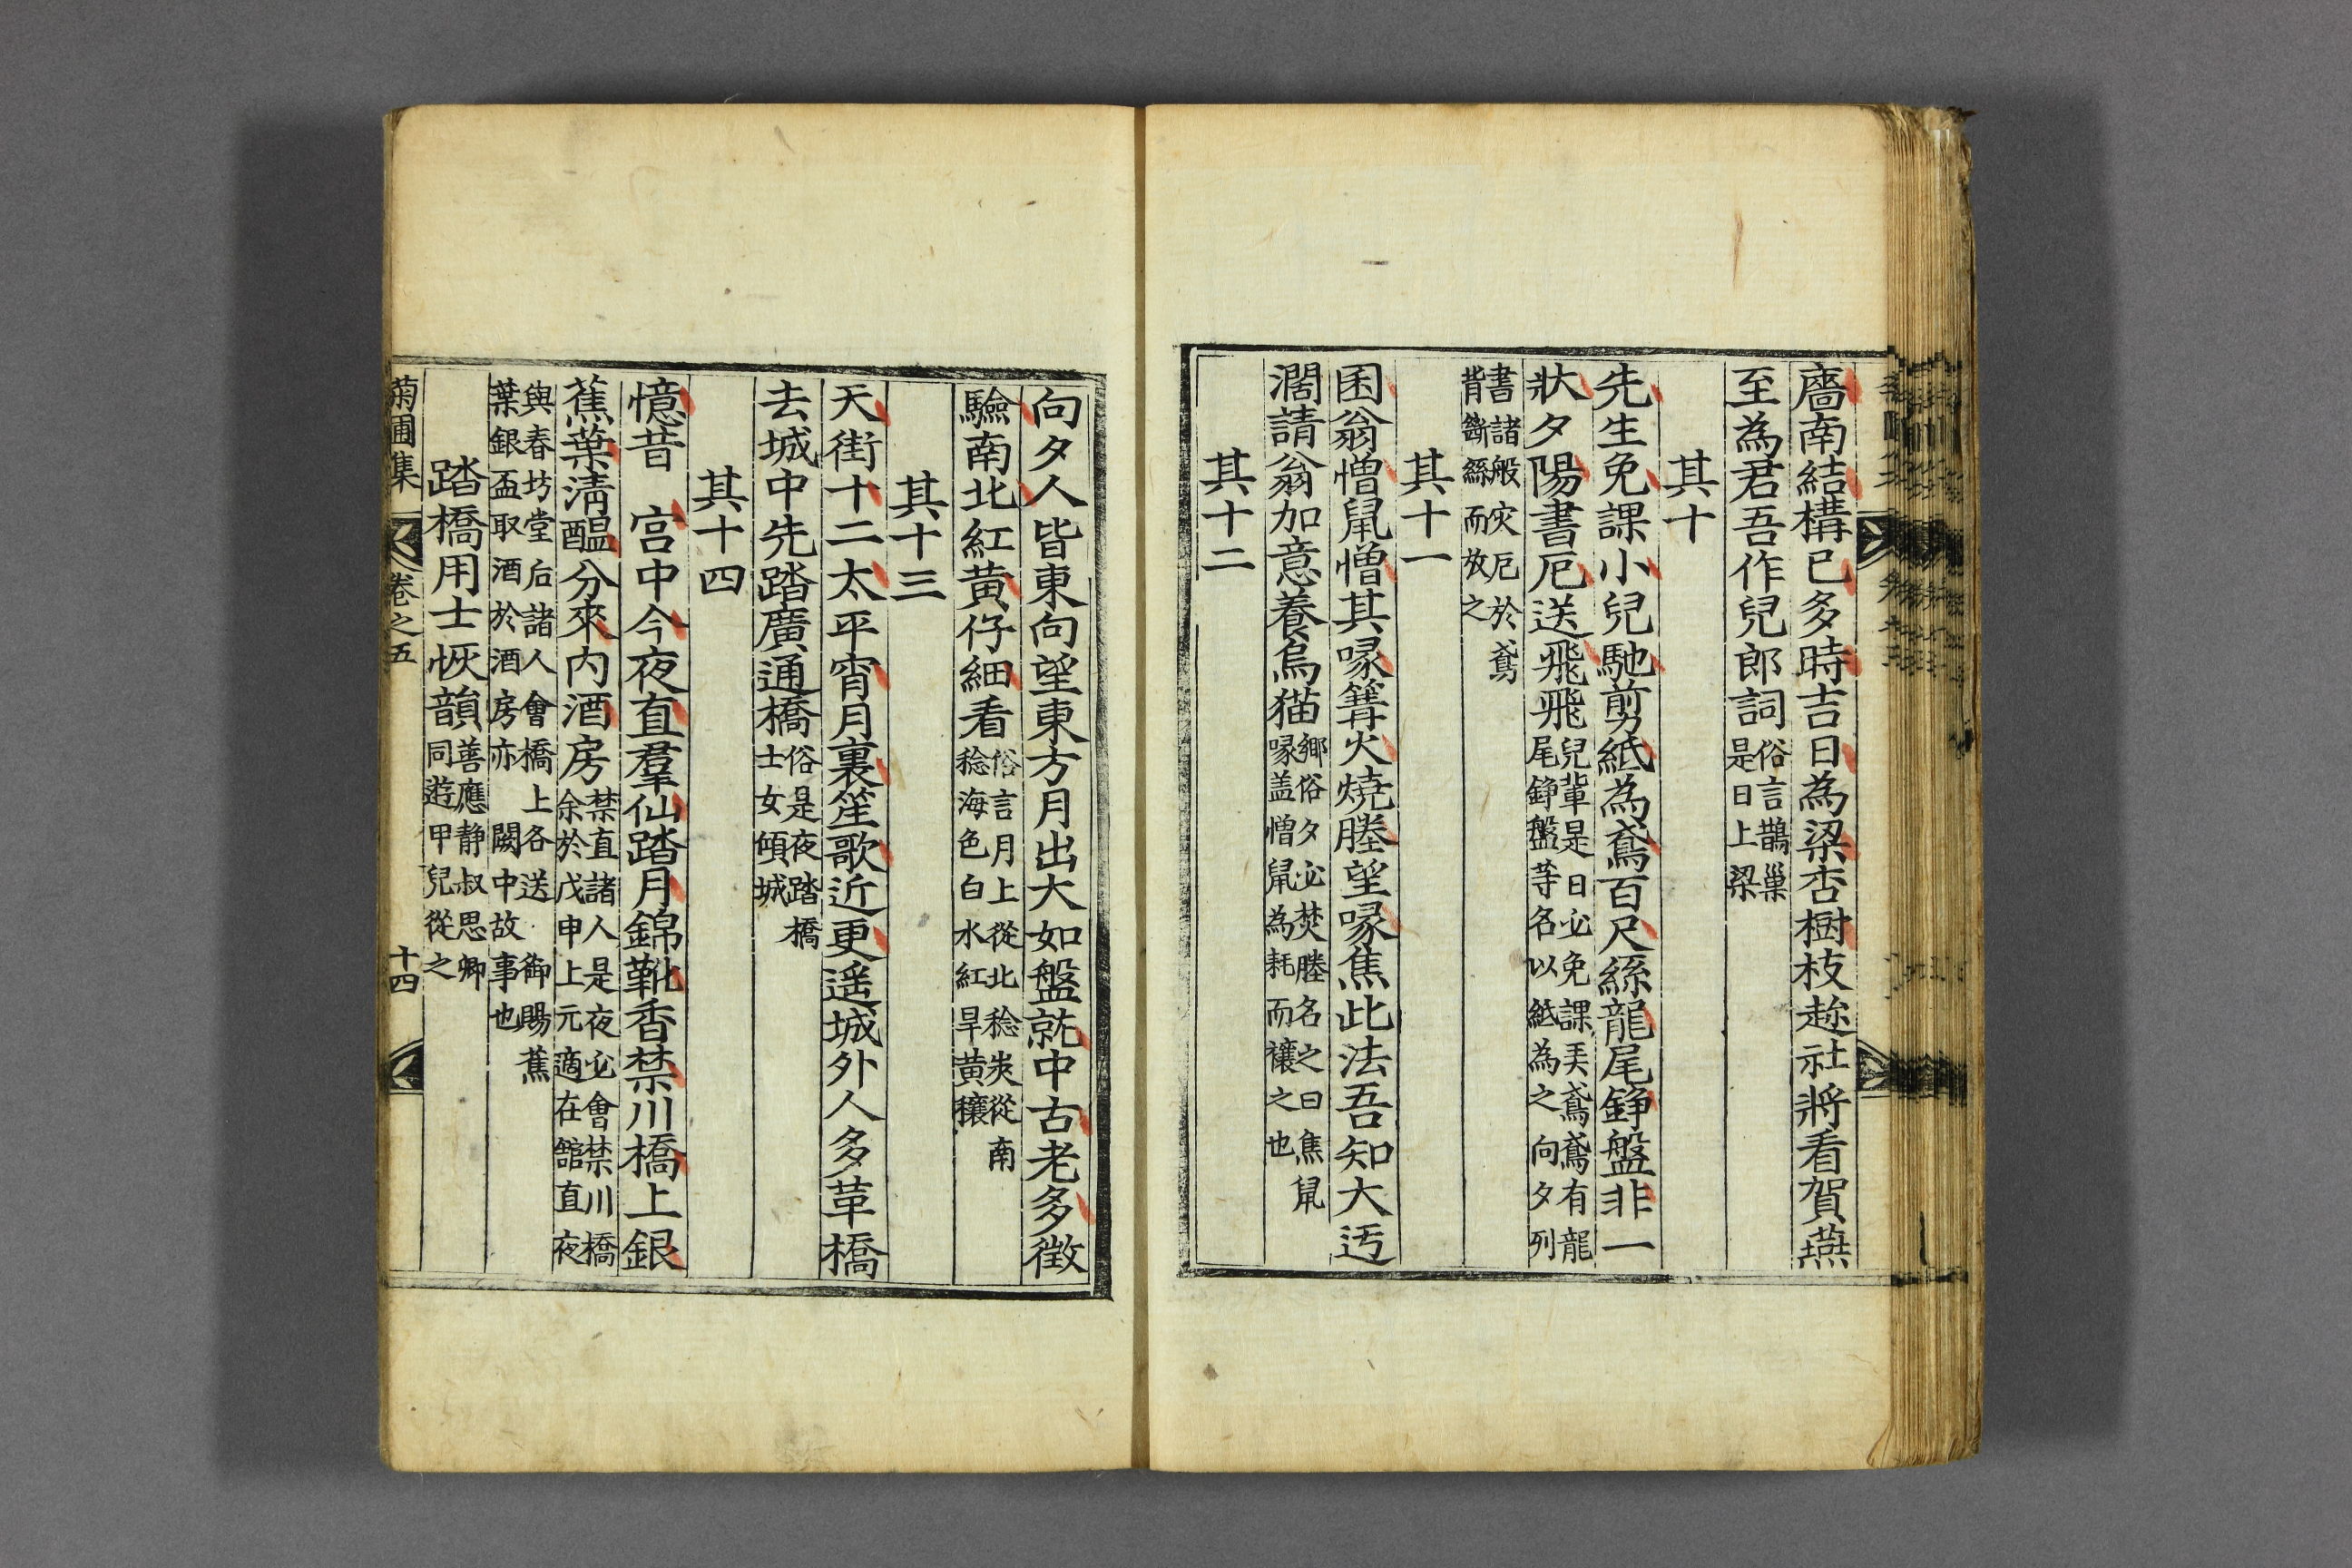 嗇南結構已多時吉日為梁杏樹枝趂社將看賀燕
至為君吾作兒郎詞
俗言鵲巢
是日上梁
其十
先生免課小兒馳剪紙為鳶百尺絲龍尾錚盤非一
狀夕陽書厄送飛飛
兒軰是日必免課弄鳶鳶有龍
尾錚盤等名以紙為之向夕列
書諸般灾厄於鳶
背斷絲而放之
其十一
囷翁憎鼠憎其喙篝火燒塍望喙焦此法吾知大迃
濶請翁加意養烏猫
鄉俗夕必焚塍名之曰焦鼠
喙盖憎鼠為耗而禳之也
其十二
向夕人皆東向望東方月出大如盤就中古老多徵
驗南北紅黃仔細看
俗言月上從北稔峡從南
稔海色白水紅旱黃穰
其十三
天街十二太平宵月裏笙歌近更遥城外人多革橋
去城中先踏廣通橋
俗是夜踏橋
士女傾城
其十四
憶昔 宮中今夜直羣仙踏月錦靴香禁川橋上銀
蕉葉淸醞分來内酒房
禁直諸人是夜必會禁川橋
余於戊申上元適在舘直夜
與春坊堂后諸人會橋上各送 御賜蕉
葉銀盃取酒於酒房亦 闕中故事也
踏橋用士恢韻
善應静叔思卿
同遊甲兒從之
菊圃集 卷之五 十四